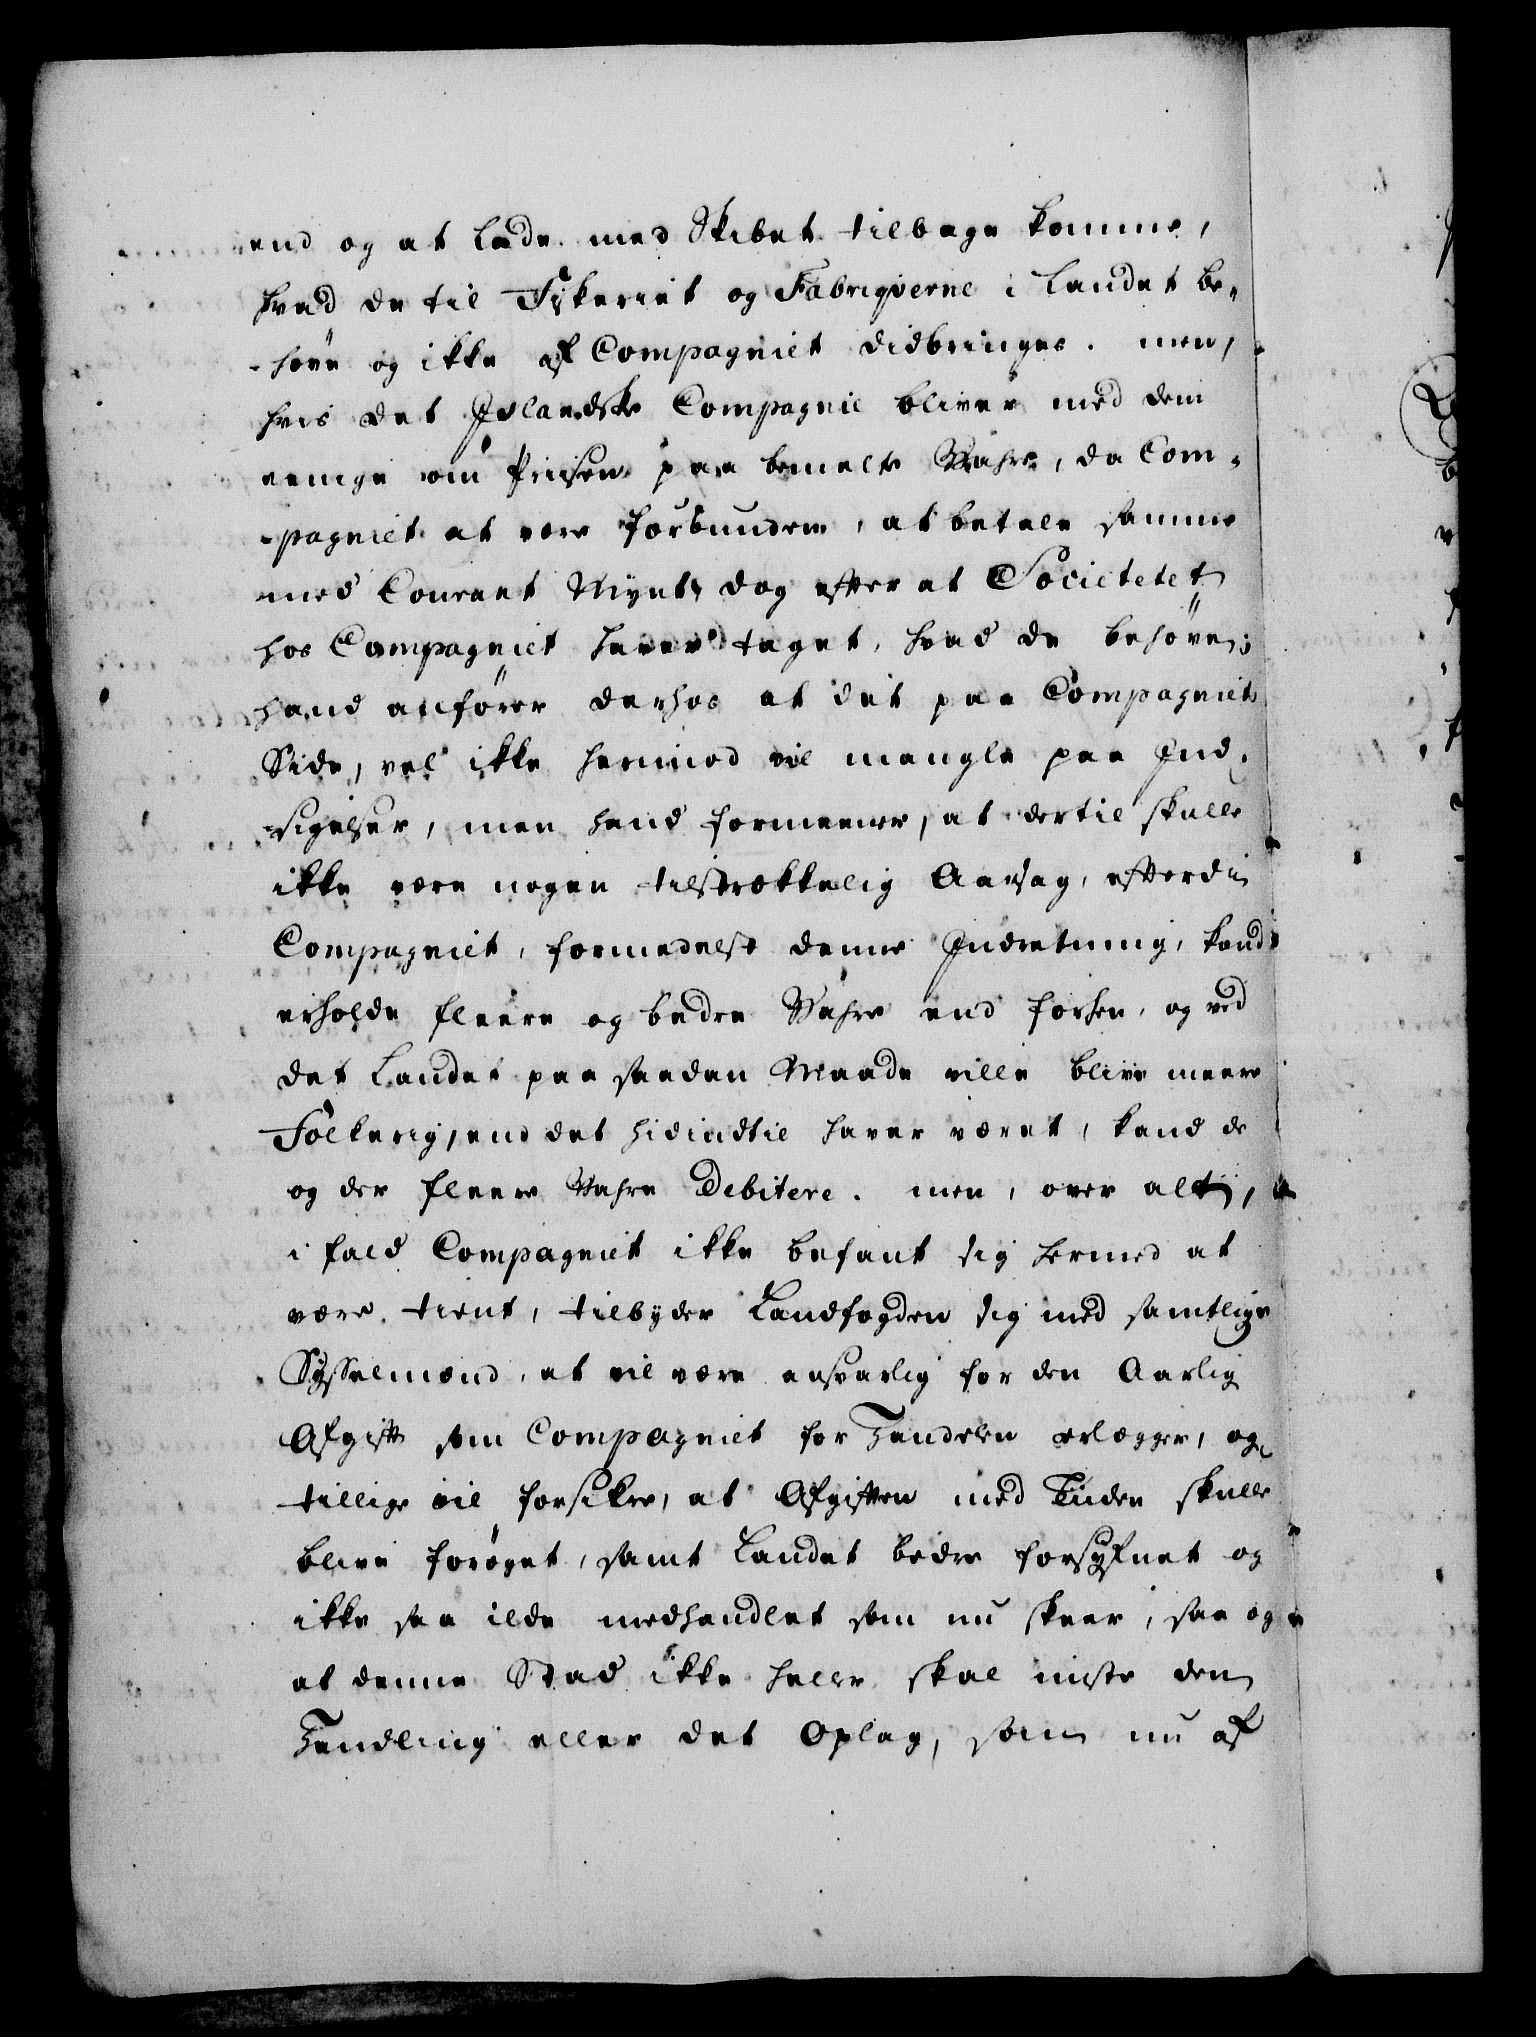 end og at lade med Skibet tilbage komme,
hvad de til Fiskeriet og Fabriqverne i Landet be-
-høve og ikke af Compagniet didbringes. men,
hvis det Islandske Compagnie bliver med dem
eenige om Prisen paa bemelte Vahre, da Com-
-pagniet at være forbunden, at betale samme
med Courant Mynt, dog efter at Societetet
hos Compagniet haver taget, hvad de behøve;
hand anfører derhos at det paa Compagniets
Side, vel ikke herimod vil mangle paa Ind-
-sigelser, men hand formeener, at dertil skulle
ikke være nogen tilstrækkelig Aarsag, efterdi
Compagniet, formedelst denne Indretning, kand
erholde fleere og bedre Vahre end forhen, og ved
det Landet paa saadan Maade ville blive meere
Folkerig, end det hidindtil haver været, kand de
og der fleere Vahre Debitere. men, over alt,
i fald Compagniet ikke befant sig hermed at
være tient, tilbyder Landfogden sig med samtlige
Sysselmænd, at vil være ansvarlig for den Aarlig
Afgift som Compagniet for Handelen erlægger, og
tillige vil forsikre, at Afgiften med Tiiden skulle
blive forøget, samt Landet bedre forsyfnet og
ikke saa ilde medhandlet som nu skeer, saa og
at denne Stad ikke heller skal miste den
Handling eller det Oplag, som nu af